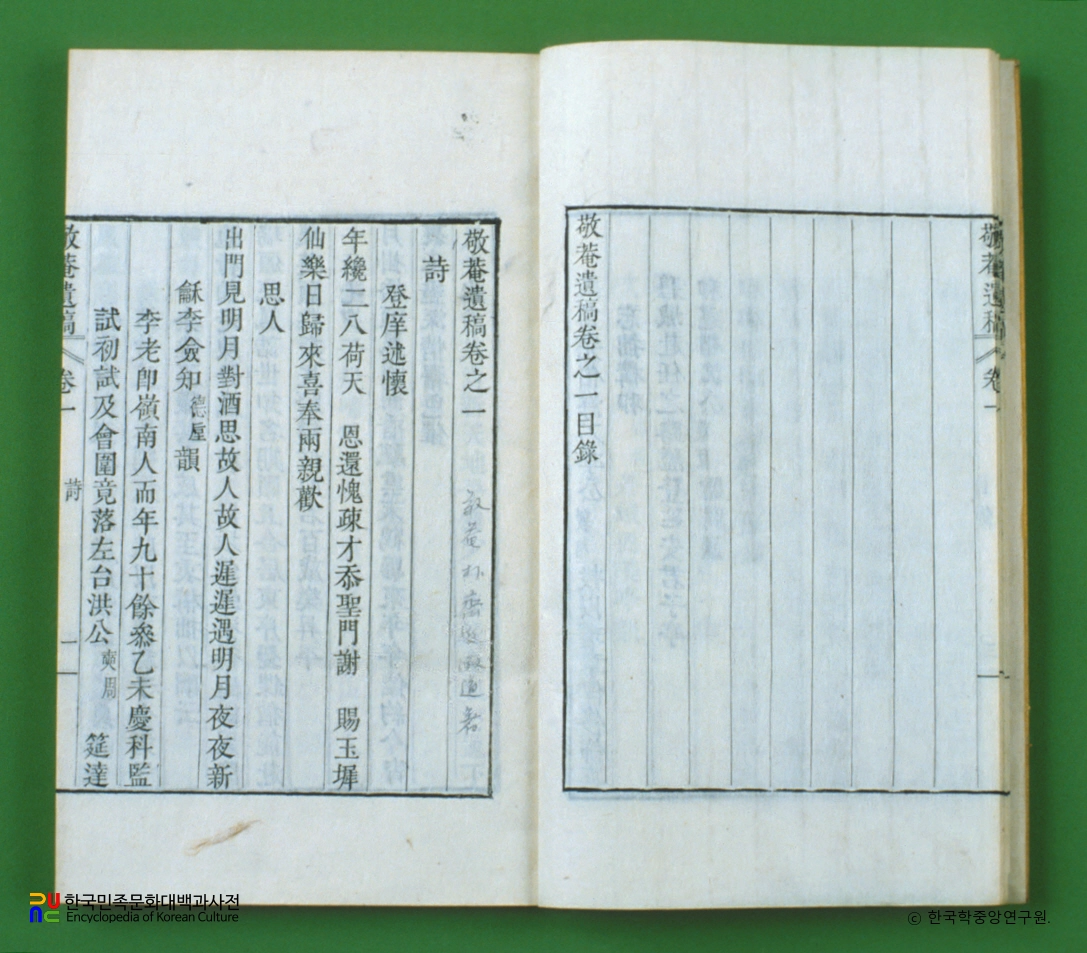 敬菴遺稿卷之一目錄
敬菴遺稿 卷一
敬菴遺稿卷之一
詩
登庠述懷
年纔二八荷天 恩還愧疎才忝聖門謝 賜玉墀
仙樂日歸來喜奉兩親歡
思人
出門見明月對酒思故人故人遲遲遇明月夜夜新
龢李僉知德垕韻
李老卽嶺南人而年九十餘叅乙未慶科監
試初試及會圍竟落左台洪公奭周 筵達
敬菴遺稿 卷一 詩 一
한국민족문화대백과사전
Encyclopedia of Korean Culture
© 한국학중앙연구원.